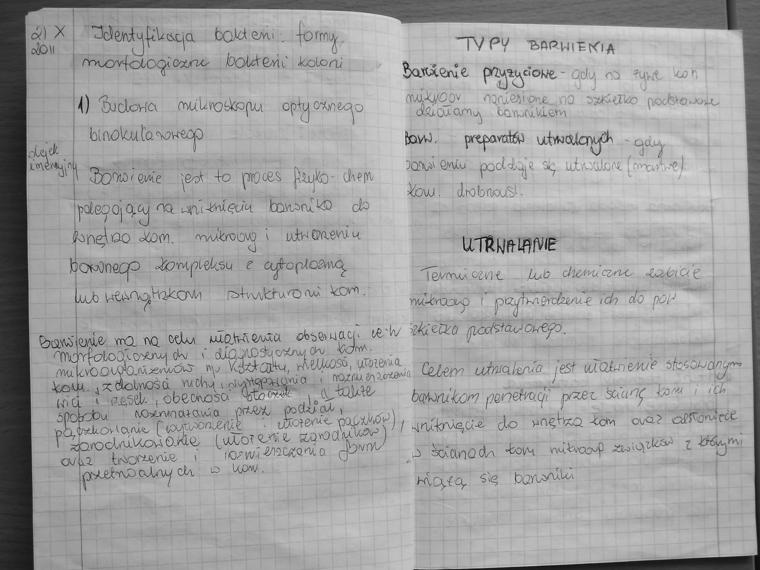 21 X
2011
Identyfikacja bakterii. formy
morfologiczne bakterii kolonii
1) Budowa mikroskopu optycznego
binokularowego
olejek
imersyjny
Barwienie jest to proces fizyko-chem
polegający na wniknięciu barwnika do
wnętrza kom. mikroorg i utworzeniu
barwnego kompleksu z cytoplazmą
lub wewnątrzkom strukturami kom.
Barwienie ma na celu ułatwienia obserwacji cech
morfologicznych i diagnostycznych kom.
mikroorganizmów np kształtu, wielkości, ułożenia
kom, zdolności ruchu, występowania i rozmieszczenia
wici i rzęsek, obecności otoczek a także
sposobu rozmnażania przez podział,
pączkowanie (wytworzenie i ułożenie pączków)
zarodnikowanie (ułożenie zarodników)
oraz tworzenie i rozmieszczania
w kom.
TYPY BARWIENIA
Barwienie przyżyciowe - gdy na żywe kom
mikroor naniesione na szkiełko podstawowe
działamy barwnikiem
Barw. preparatów utrwalonych - gdy
barwieniu poddaje się utrwalone (martwe)
kom. drobnoust.
UTRWALANIE
Termiczne lub chemiczne zabicie
mikroorg i przytwierdzenie ich do pow
szkiełka podstawowego.
Celem utrwalenia jest ułatwienie stosowanym
barwnikom penetracji przez ścianę kom i ich
wniknięcie do wnętrza kom oraz odsłonięcie
w ścianach kom mikroorg związków z którymi
wiążą się barwniki